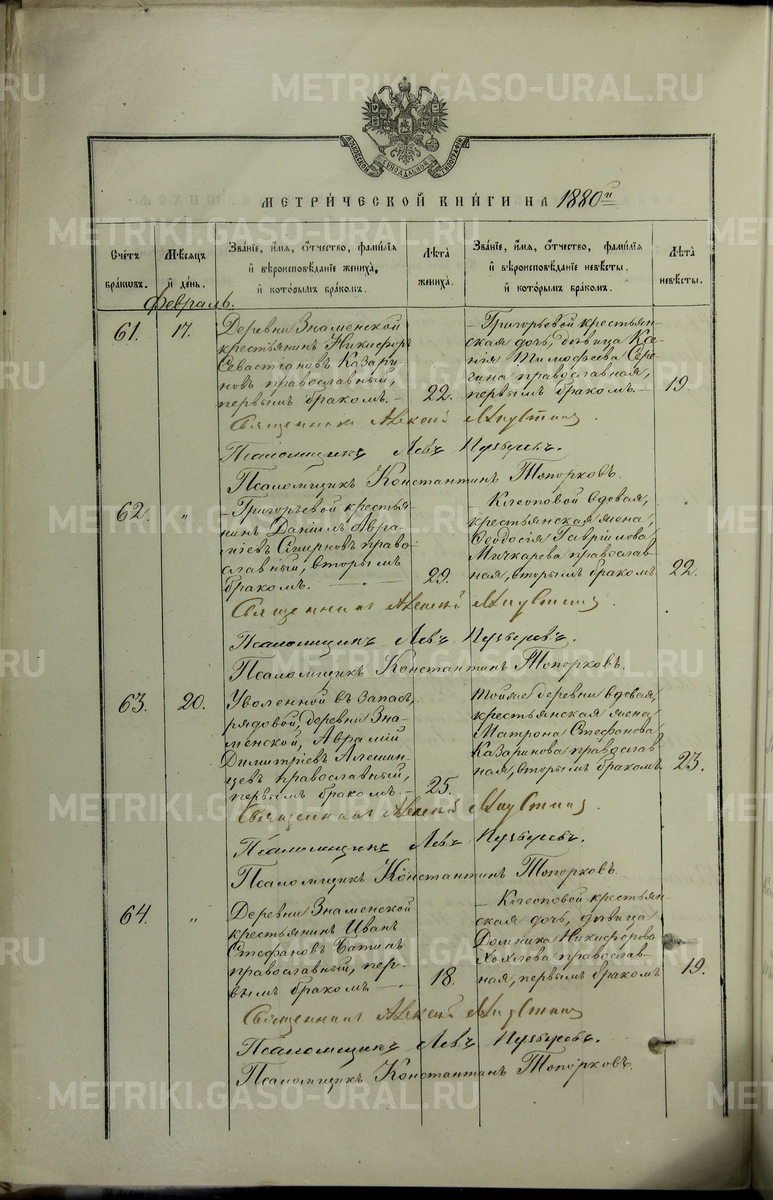 METRIKI.GASO-URAL.RU
МОСКОВСКОЙ СѴНОДАЛЬНОЙ ТИПОГРАФІИ
МЕТРИ́ЧЕСКОЙ КНИ́ГИ НА 1880й
Сче́тъ бра́ковъ.
Мѣ́сяцъ и҆ де́нь.
Зва́нїе, и҆́мя, ѻ҆́тчество, фамѝлїя
и҆ вѣроисповѣ́данїе жениха̀,
и҆ кото́рымъ бра́комъ.
Лѣ́та жениха̀.
Зва́нїе, и҆́мя, ѻ҆́тчество, фамѝлїя
и҆ вѣроисповѣ́данїе невѣ́сты,
и҆ кото́рымъ бра́комъ.
Лѣ́та невѣ́сты.
Февраль.
61. 17.
Деревни Знаменской
крестьянинъ Никифоръ
Севастіановъ Казари-
новъ православный,
первымъ бракомъ. —
22.
— Григорьевой крестьян-
ская дочь, дѣвица Ксе-
нія Тимофеева Серо-
гина православная,
первымъ бракомъ. —
19.
Священникъ Алексей
Псаломщикъ Левъ
Псаломщикъ Константинъ Топорковъ.
62. "
— Григорьевой крестья-
нинъ Даніилъ Авра-
міевъ Смирновъ право-
славный, вторымъ
бракомъ. —
29.
— Клеоповой вдовая,
крестьянская жена,
Ѳеодосія Гавріилова
Мичкарева православ-
ная, вторымъ бракомъ.
22.
Священникъ Алексей
Псаломщикъ Левъ
Псаломщикъ Константинъ Топорковъ.
63. 20.
Уволенной въ запасъ,
рядовой, деревни Зна-
менской, Аврамій
Димитріевъ Алешин-
цевъ православный,
первымъ бракомъ. —
25.
Тойже деревни вдовая,
крестьянская жена,
Матрона Стефанова
Казаринова православ-
ная, вторымъ бракомъ.
23.
Священникъ Алексей
Псаломщикъ Левъ
Псаломщикъ Константинъ Топорковъ.
64. "
Деревни Знаменской
крестьянинъ Иванъ
Стефановъ Батинъ
православный, пер-
вымъ бракомъ. —
18.
— Клеоповой крестьян-
ская дочь, дѣвица
Домника Никифорова
Хохлева православ-
ная, первымъ бракомъ
19.
Священникъ Алексей
Псаломщикъ Левъ
Псаломщикъ Константинъ Топорковъ.